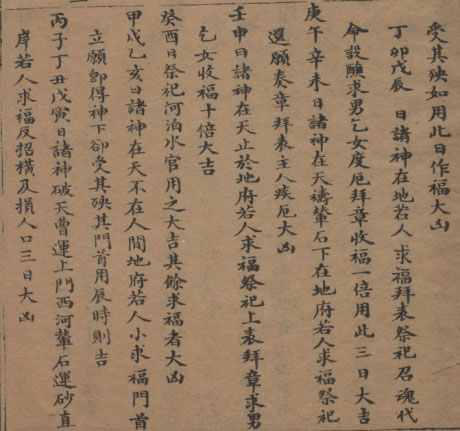 受其殃如用此日作福大凶
丁卯戊辰 日諸神在地若人求福拜表祭祀召魂代
命設醮求男乞女度厄拜章收福一倍用此三日大吉
庚午辛未日諸神在天擣輦石下在地府若人求福祭祀
還願奏章拜表主人疾厄大凶
壬申日諸神在天止於地府若人求福祭祀上表拜章求男
乞女收福十倍大吉
癸酉日祭祀河泊水官用之大吉其餘求福者大凶
甲戌乙亥日諸神在天不在人間地府若人小求福門首
立願卽得神下卻受其殃其門首用辰時則吉
丙子丁丑戊寅日諸神破天曹運上門西河輦石運砂直
岸若人求福反招橫及損人口三日大凶